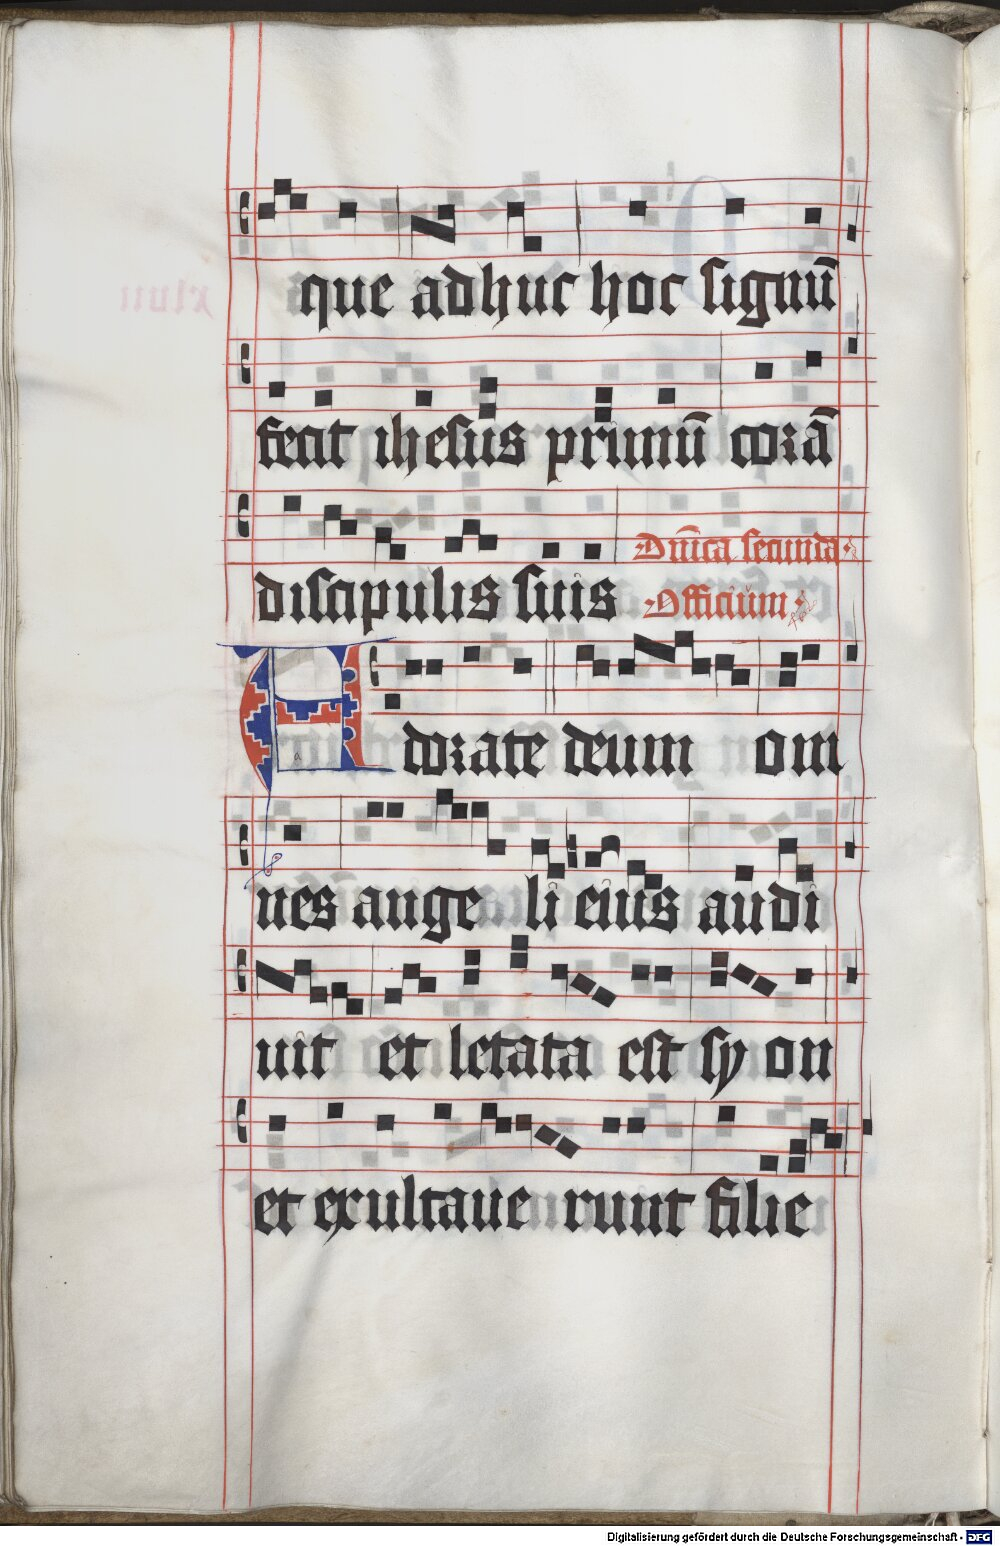 que adhuc hoc signū
fecit ihesus primū corā
discipulis suis
Dn̄ica secunda
Officium
Adorate deum om
nes ange li eius audi
uit et letata est syon
et exultaue runt filie
Digitalisierung gefördert durch die Deutsche Forschungsgemeinschaft - DFG